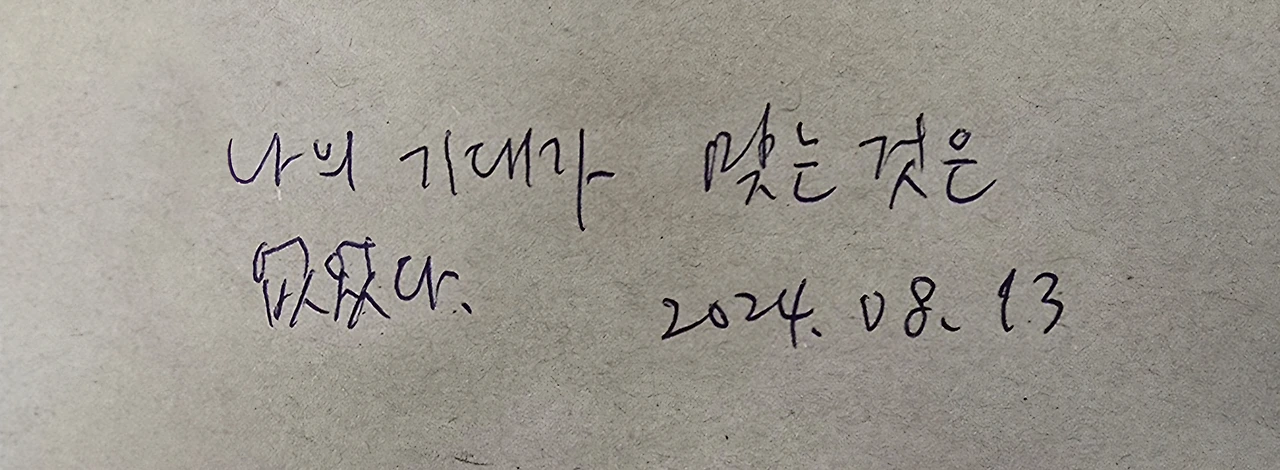 나의 기대가 맞는 것은
없었다. 2024. 08. 13